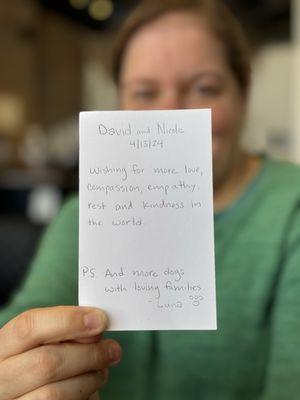 David and Nicole
4/13/24
Wishing for more love,
compassion, empathy,
rest and kindness in
the world.
PS. And more dogs
with loving families.
- Luna